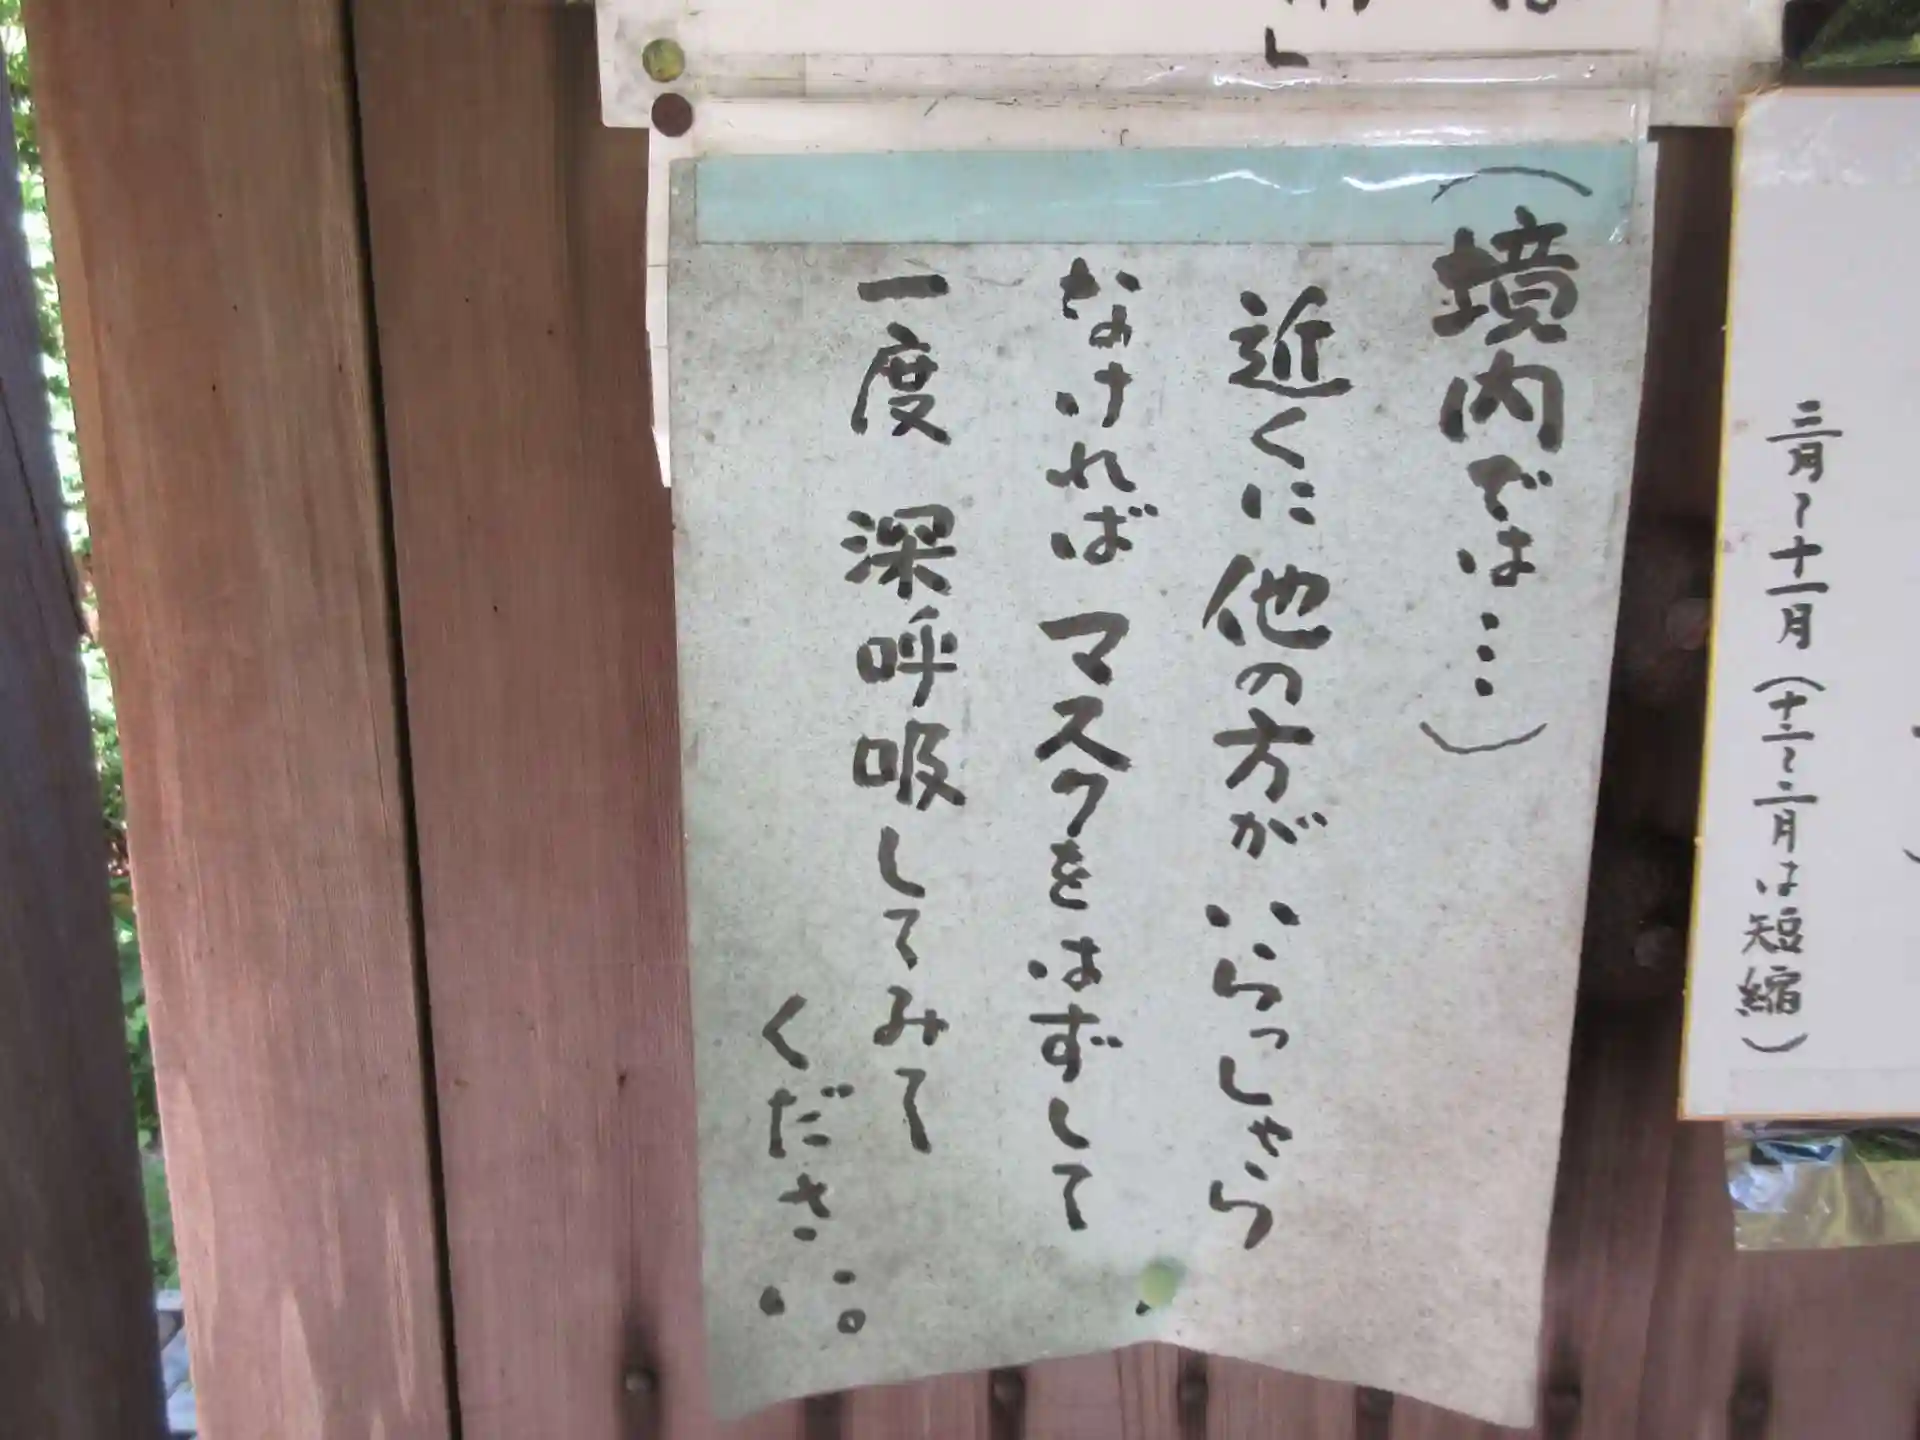 三月〜十一月(十二〜二月は短縮)
(境内では……)
近くに他の方がいらっしゃら
なければマスクをはずして
一度 深呼吸してみて
ください。